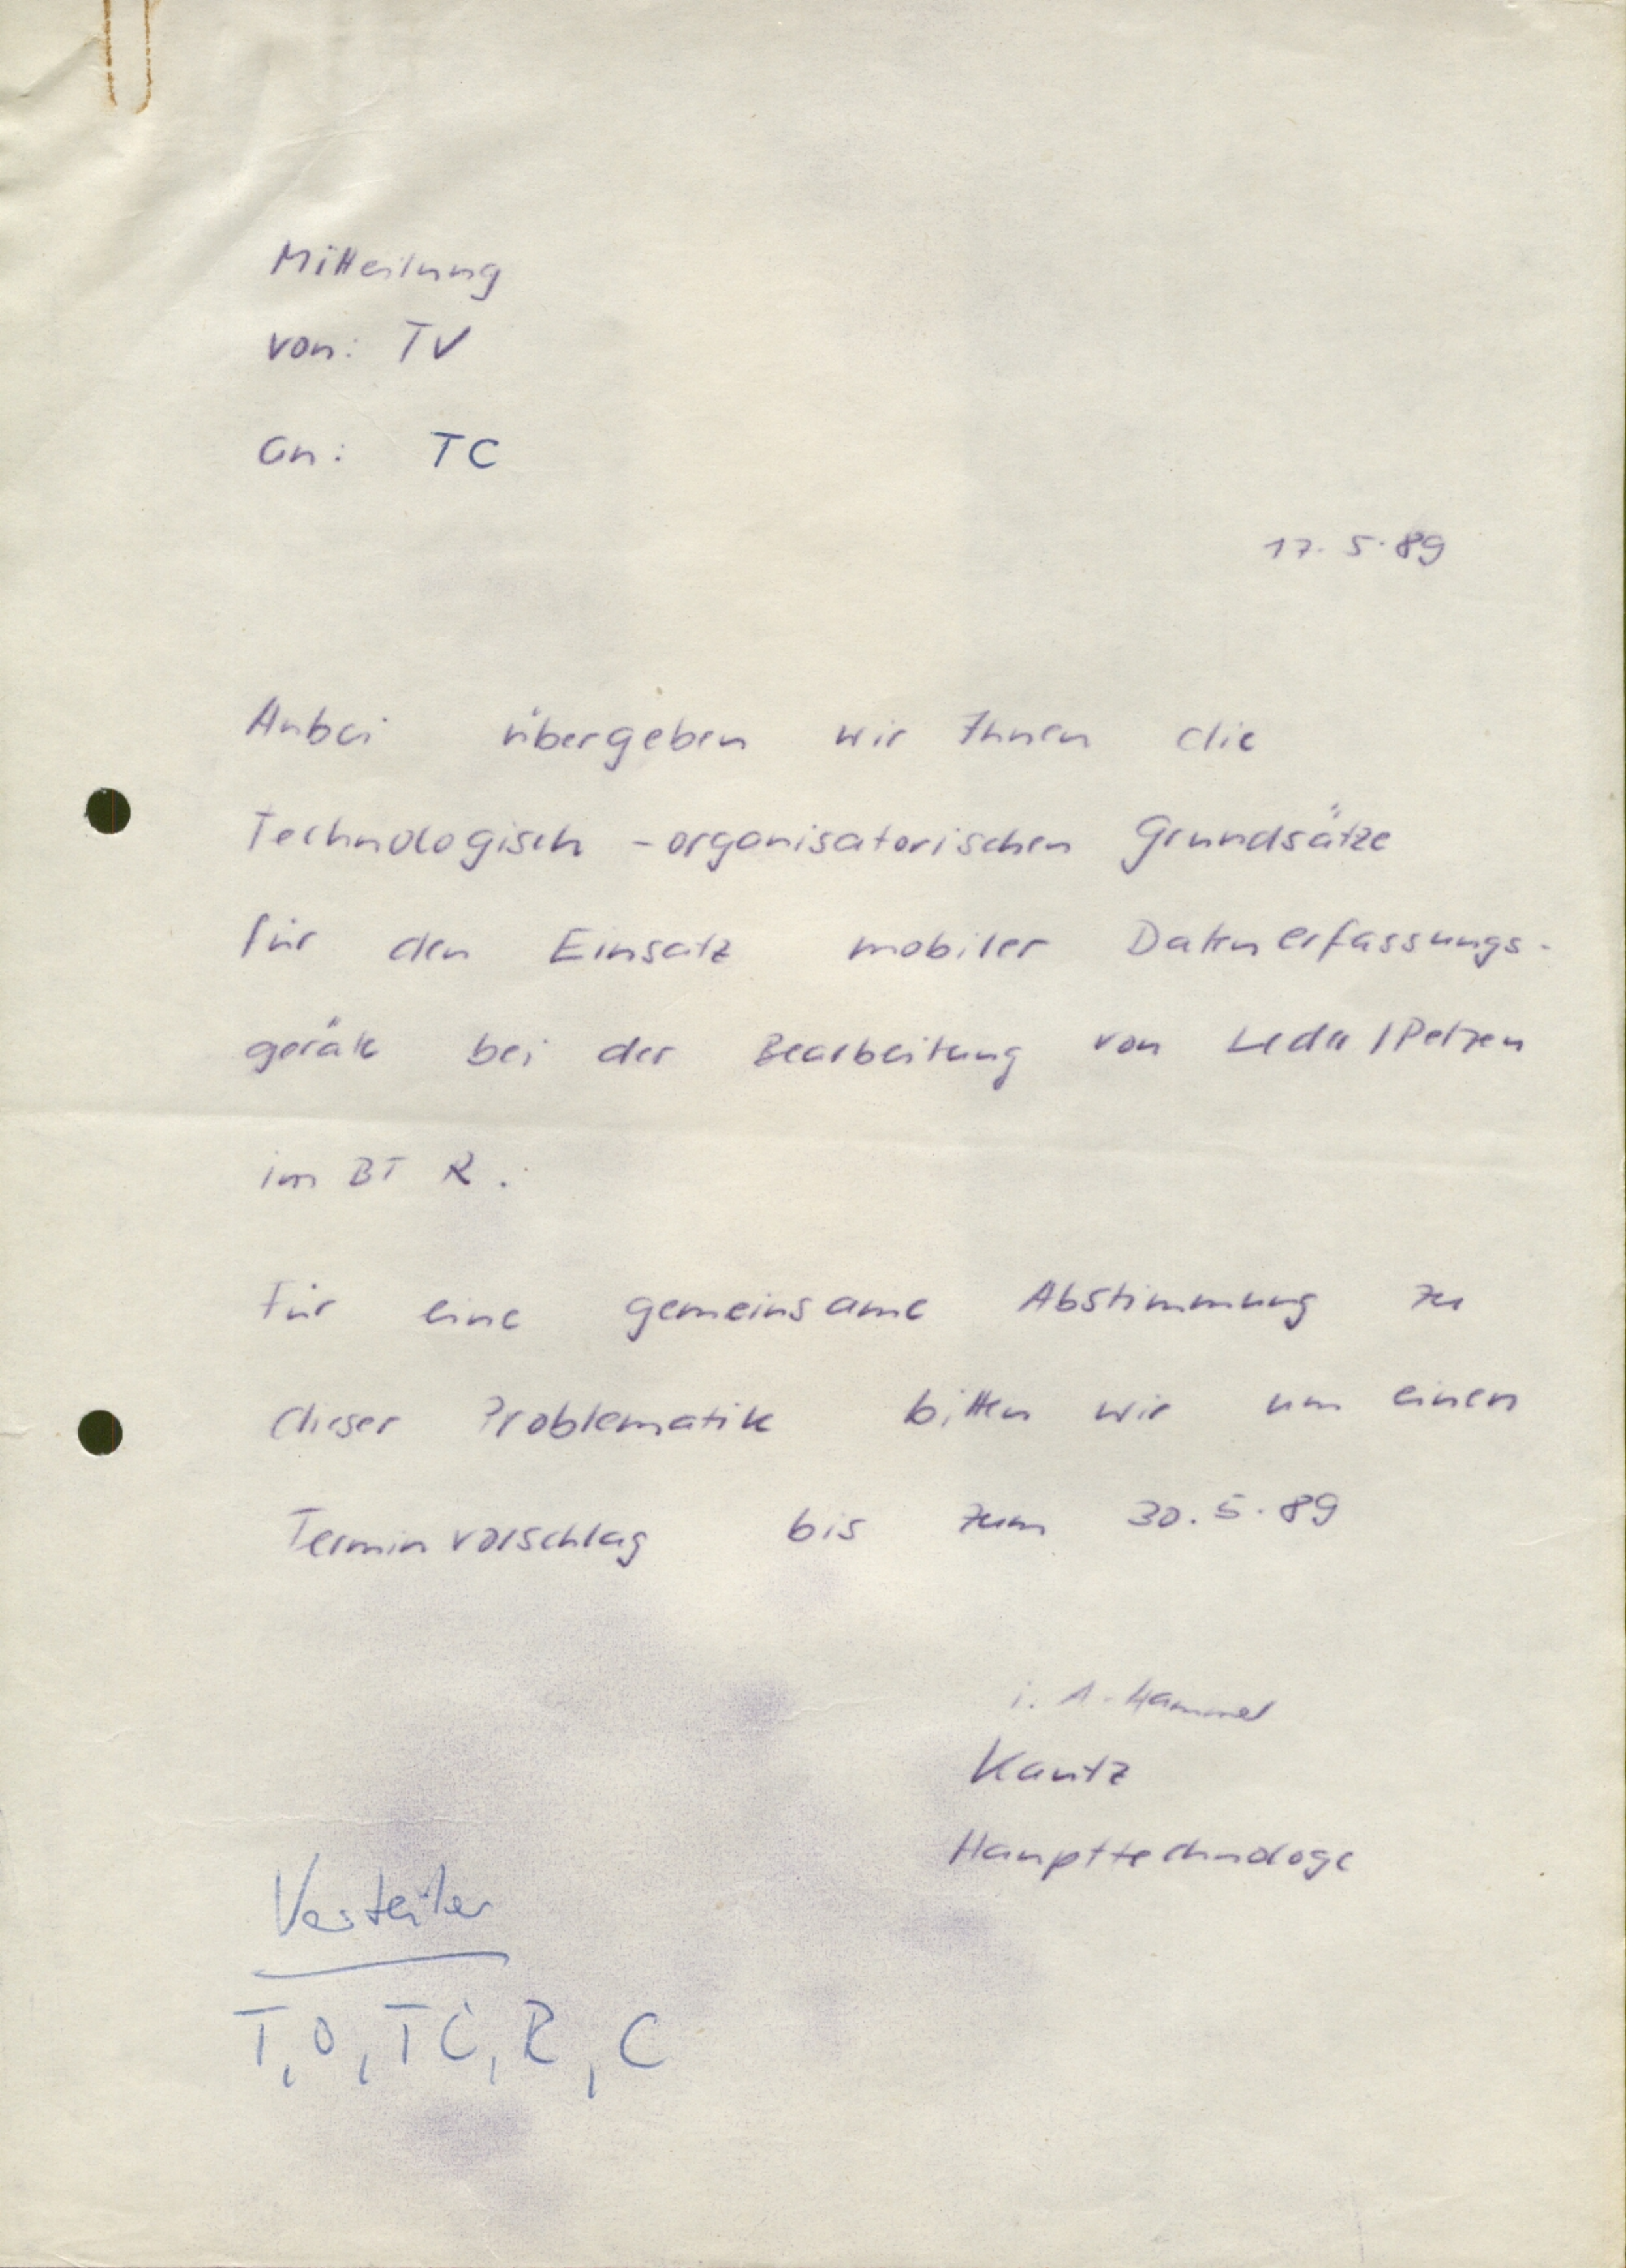 Mitteilung
von: TV
an: TC
17.5.89
Anbei übergeben wir Ihnen die
Technologisch-organisatorischen Grundsätze
für den Einsatz mobiler Datenerfassungs-
geräte bei der Bearbeitung von Leder/Pelzen
im BT R.
Für eine gemeinsame Abstimmung zu
dieser Problematik bitten wir um einen
Terminvorschlag bis zum 30.5.89
i. A. Hammel
Kautz
Haupttechnologe
Verteiler
T, O, TC, R, C